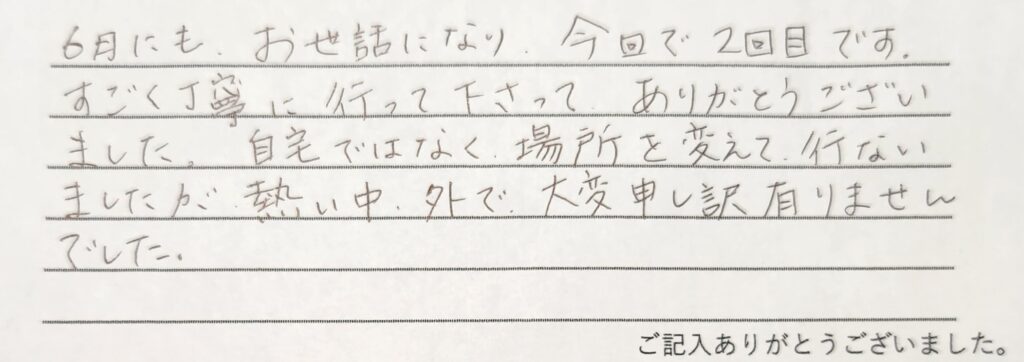 6月にも、お世話になり、今回で2回目です。
すごく丁寧に行って下さって、ありがとうござい
ました。自宅ではなく、場所を変えて、行ない
ましたが、熱い中、外で、大変申し訳有りません
でした。
ご記入ありがとうございました。